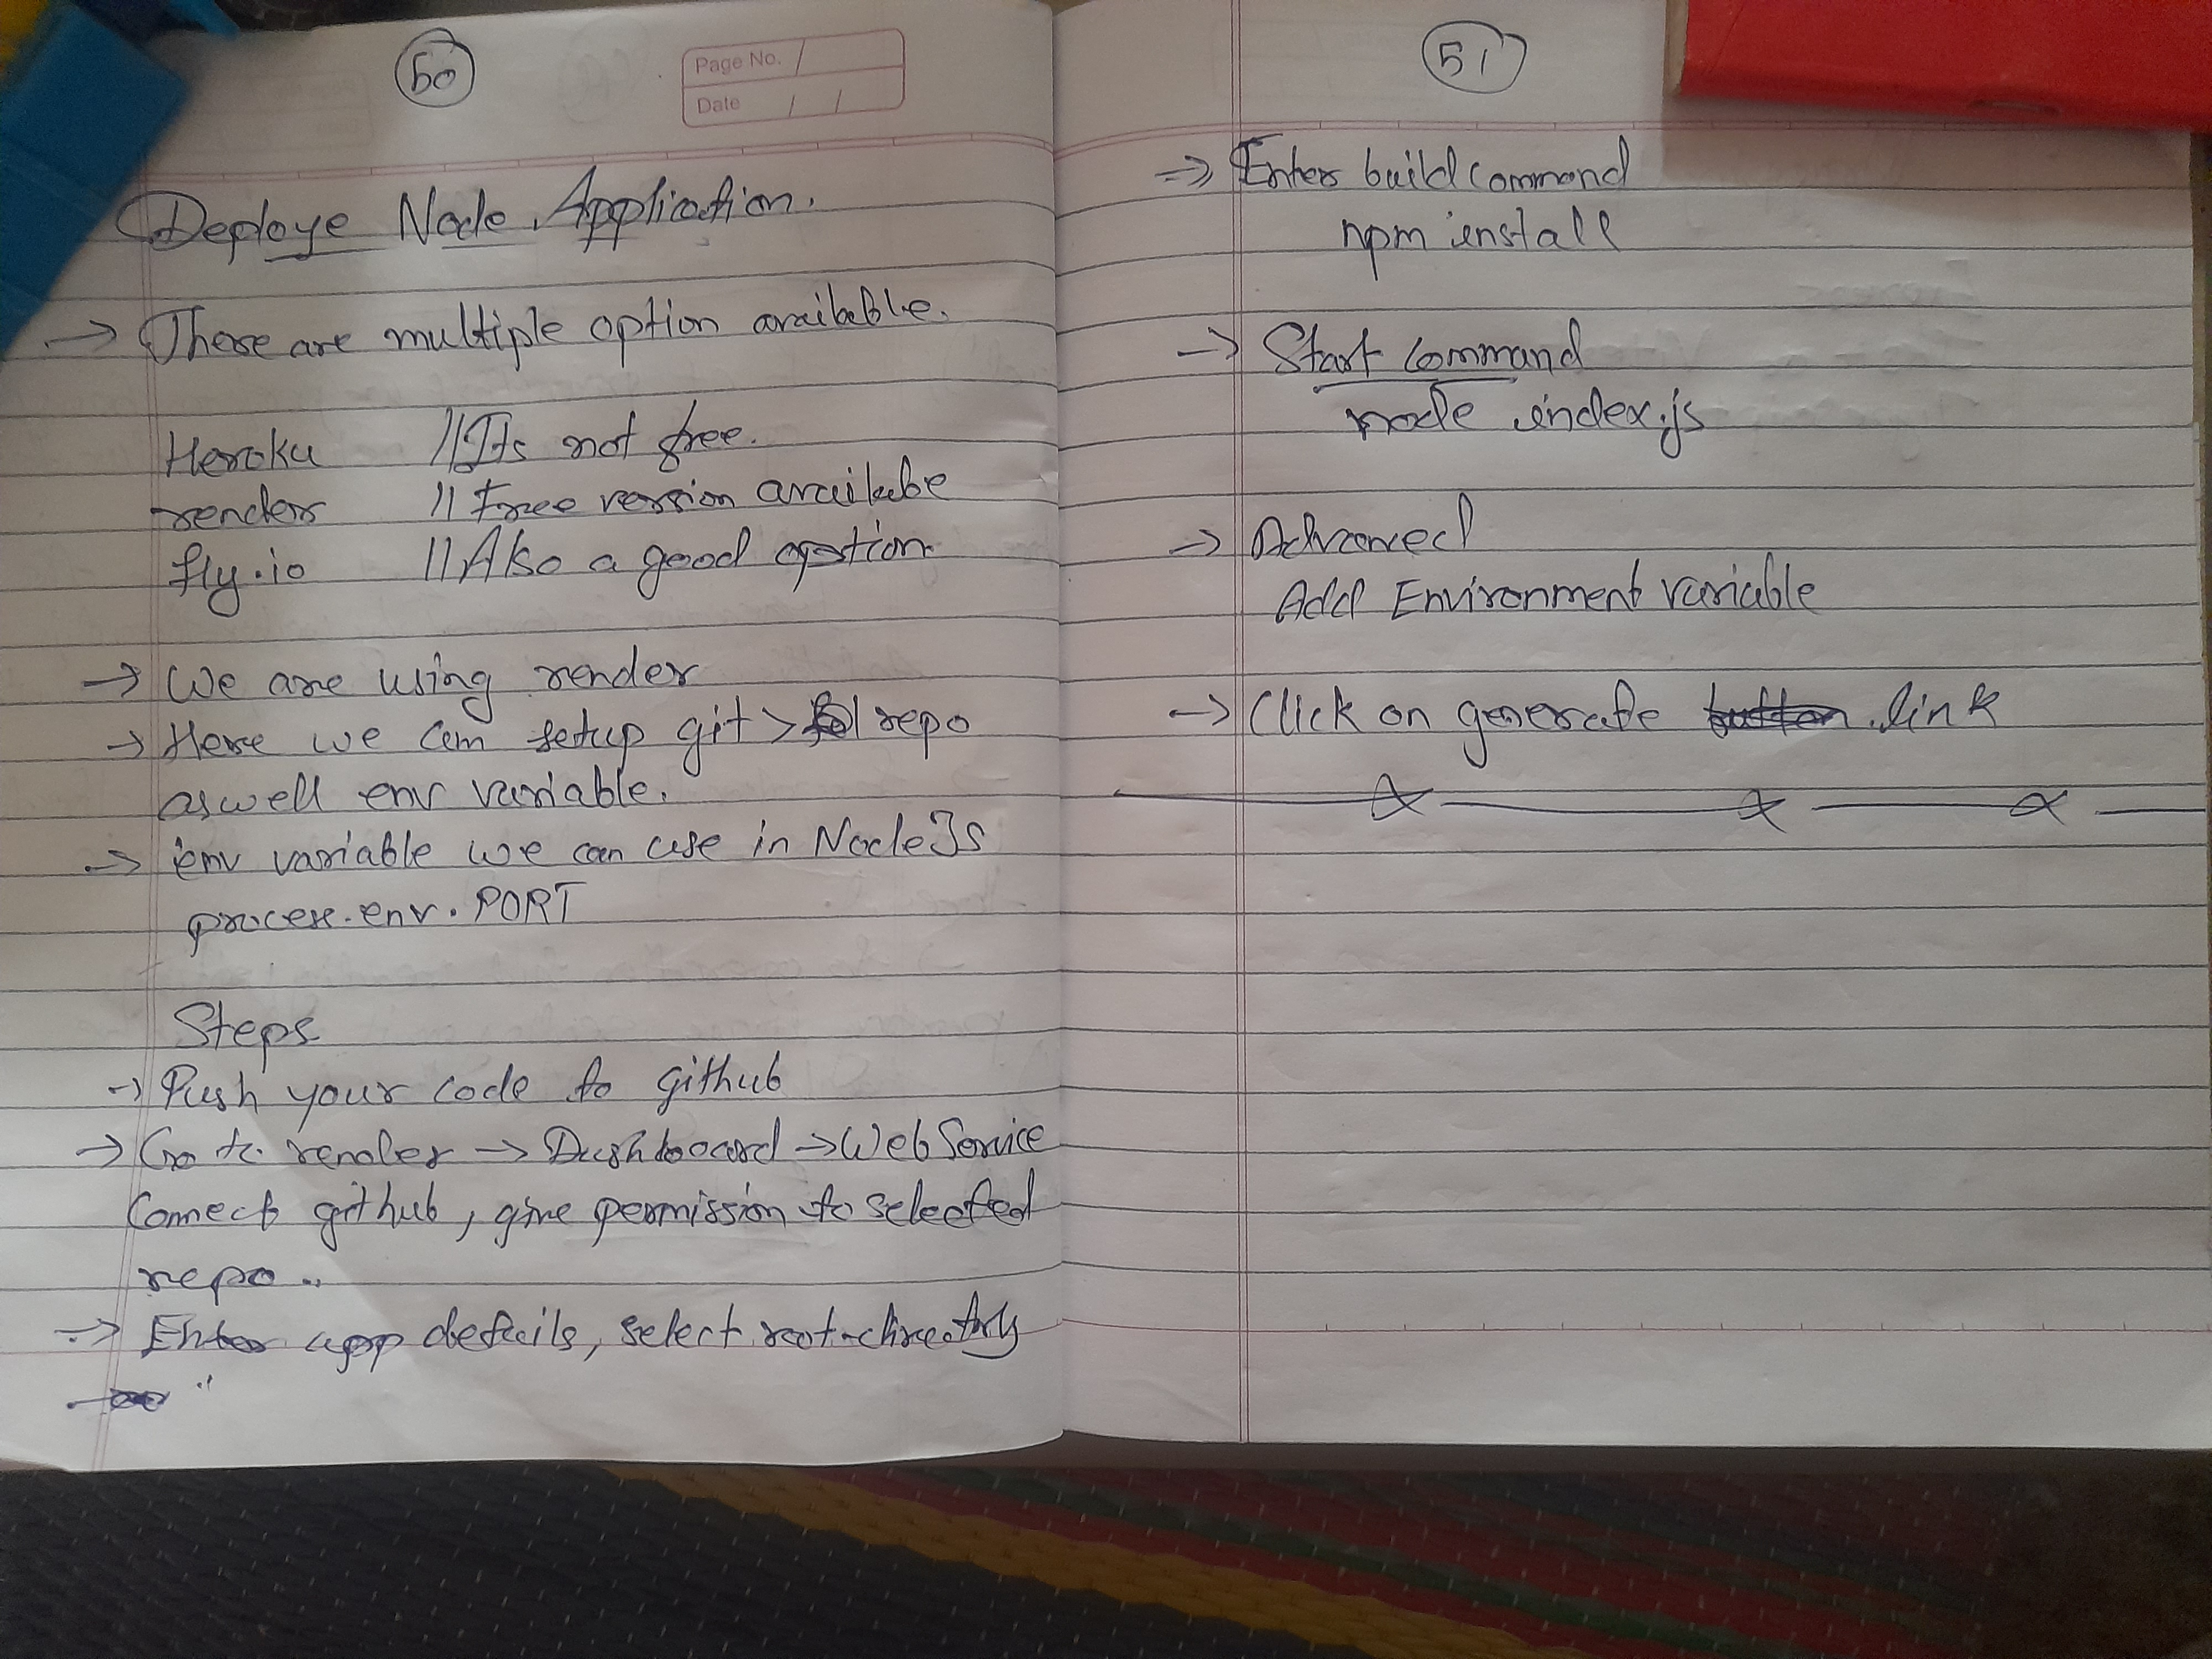 50
Page No.
Date
Deploye Node Application.
→ There are multiple option available.
Heroku //Its not free.
render // Free version availabe
fly.io // Also a good opstion
→ We are using render
→ Here we can setup git > repo
aswell env variable.
→ env variable we can use in NodeJs
process.env.PORT
Steps
→ Push your code to github
→ Go to render → Dashboard → Web Service
Connect github, give permission to selected
repo..
→ Enter app details, select root-directory
51
⇒ Enter build command
npm install
→ Start command
node index.js
→ Advanced
Add Environment variable
→ Click on generate button link